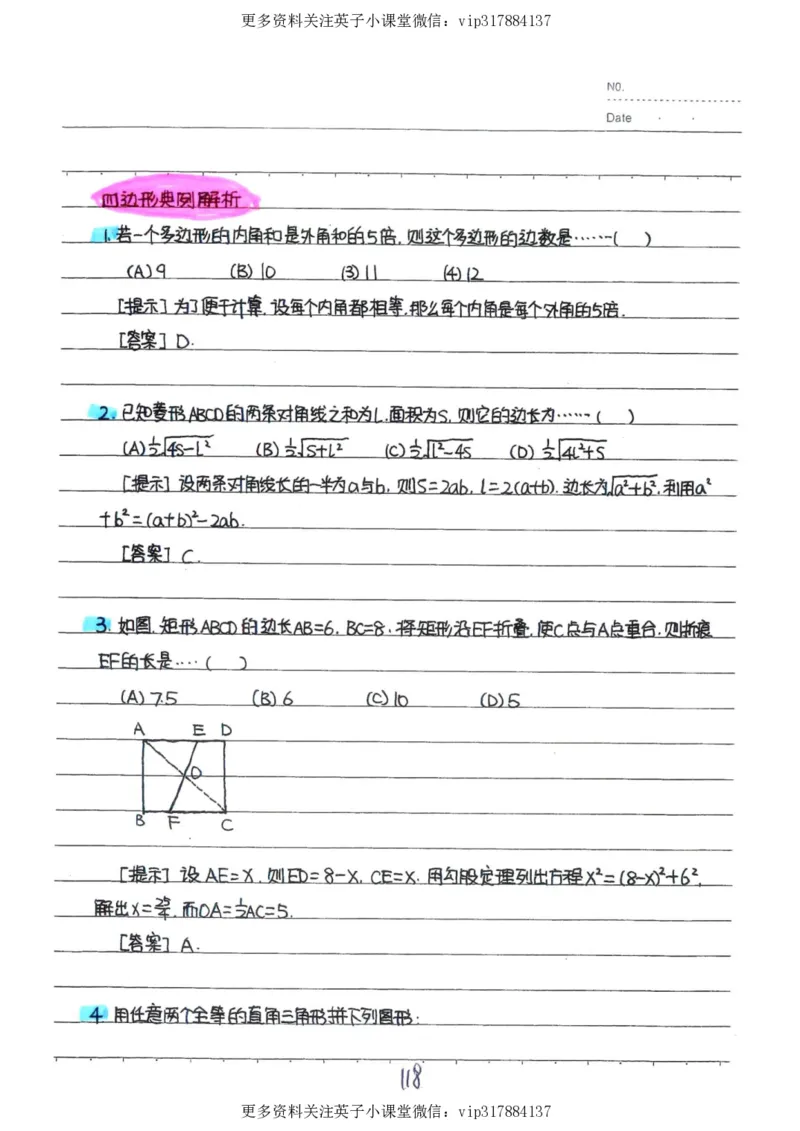 更多资料关注英子小课堂微信：vip317884137
NO.
Date
四边形典例解析
1.若一个多边形的内角和是外角和的5倍,则这个多边形的边数是……( )
(A)9 (B)10 (3)11 (4)12
[提示]为了便于计算,设每个内角都相等,那么每个内角是每个外角的5倍.
[答案]D.
2.已知菱形ABCD的两条对角线之和为l,面积为S,则它的边长为……( )
(A)½√4S-l² (B)½√S+l² (C)½√l²-4S (D)½√4l²+S
[提示]设两条对角线长的一半为a与b,则S=2ab,l=2(a+b).边长为√a²+b²,利用a²
+b²=(a+b)²-2ab.
[答案]C.
3.如图,矩形ABCD的边长AB=6,BC=8,将矩形沿EF折叠,使C点与A点重合,则折痕
EF的长是…( )
(A)7.5 (B)6 (C)10 (D)5
A E D
O
B F C
[提示]设AE=x,则ED=8-x,CE=x.用勾股定理列出方程x²=(8-x)²+6²,
解出x=25/4,而OA=½AC=5.
[答案]A.
4 用任意两个全等的直角三角形拼下列图形:
118
更多资料关注英子小课堂微信：vip317884137